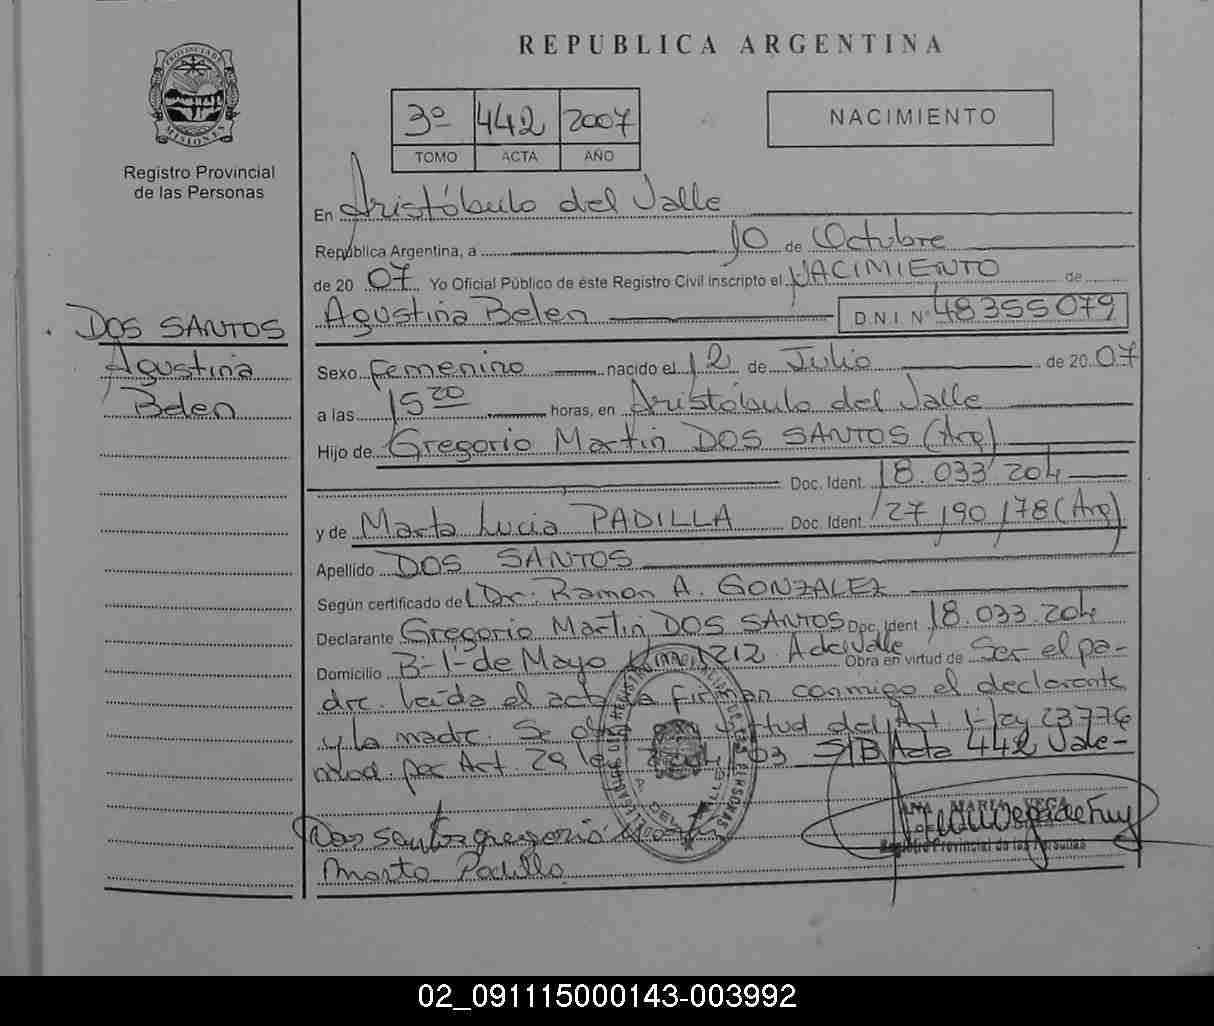 REPUBLICA ARGENTINA
PROVINCIA DE MISIONES
Registro Provincial
de las Personas
3º 442 2007
TOMO ACTA AÑO
NACIMIENTO
En Aristóbulo del Valle
República Argentina, a 10 de Octubre
de 20 07 Yo Oficial Público de éste Registro Civil inscripto el NACIMIENTO de
DOS SANTOS
Agustina
Belen
Agustina Belen D.N.I. Nº 48355079
Sexo Femenino nacido el 12 de Julio de 20 07
a las 15 20 horas, en Aristóbulo del Valle
Hijo de Gregorio Martin DOS SANTOS (Arg)
Doc. Ident. 18.033 204
y de Marta Lucia PADILLA Doc. Ident. 27190178 (Arg)
Apellido DOS SANTOS
Según certificado del Dr. Ramon A. GONZALEZ
Declarante Gregorio Martin DOS SANTOS Doc. Ident 18.033.204
Domicilio B-1-de Mayo 1212 A del Valle Obra en virtud de Ser el pa-
dre. Leída el acta la firman conmigo el declarante
y la madre. Se virtud del Art. 1-Ley 23776
por Art. 29 S/B Acta 442 Vale-
Dos santos gregorio Martin
Marta Padilla
ANA MARIA VEGA
Registro Provincial de las Personas
02_091115000143-003992